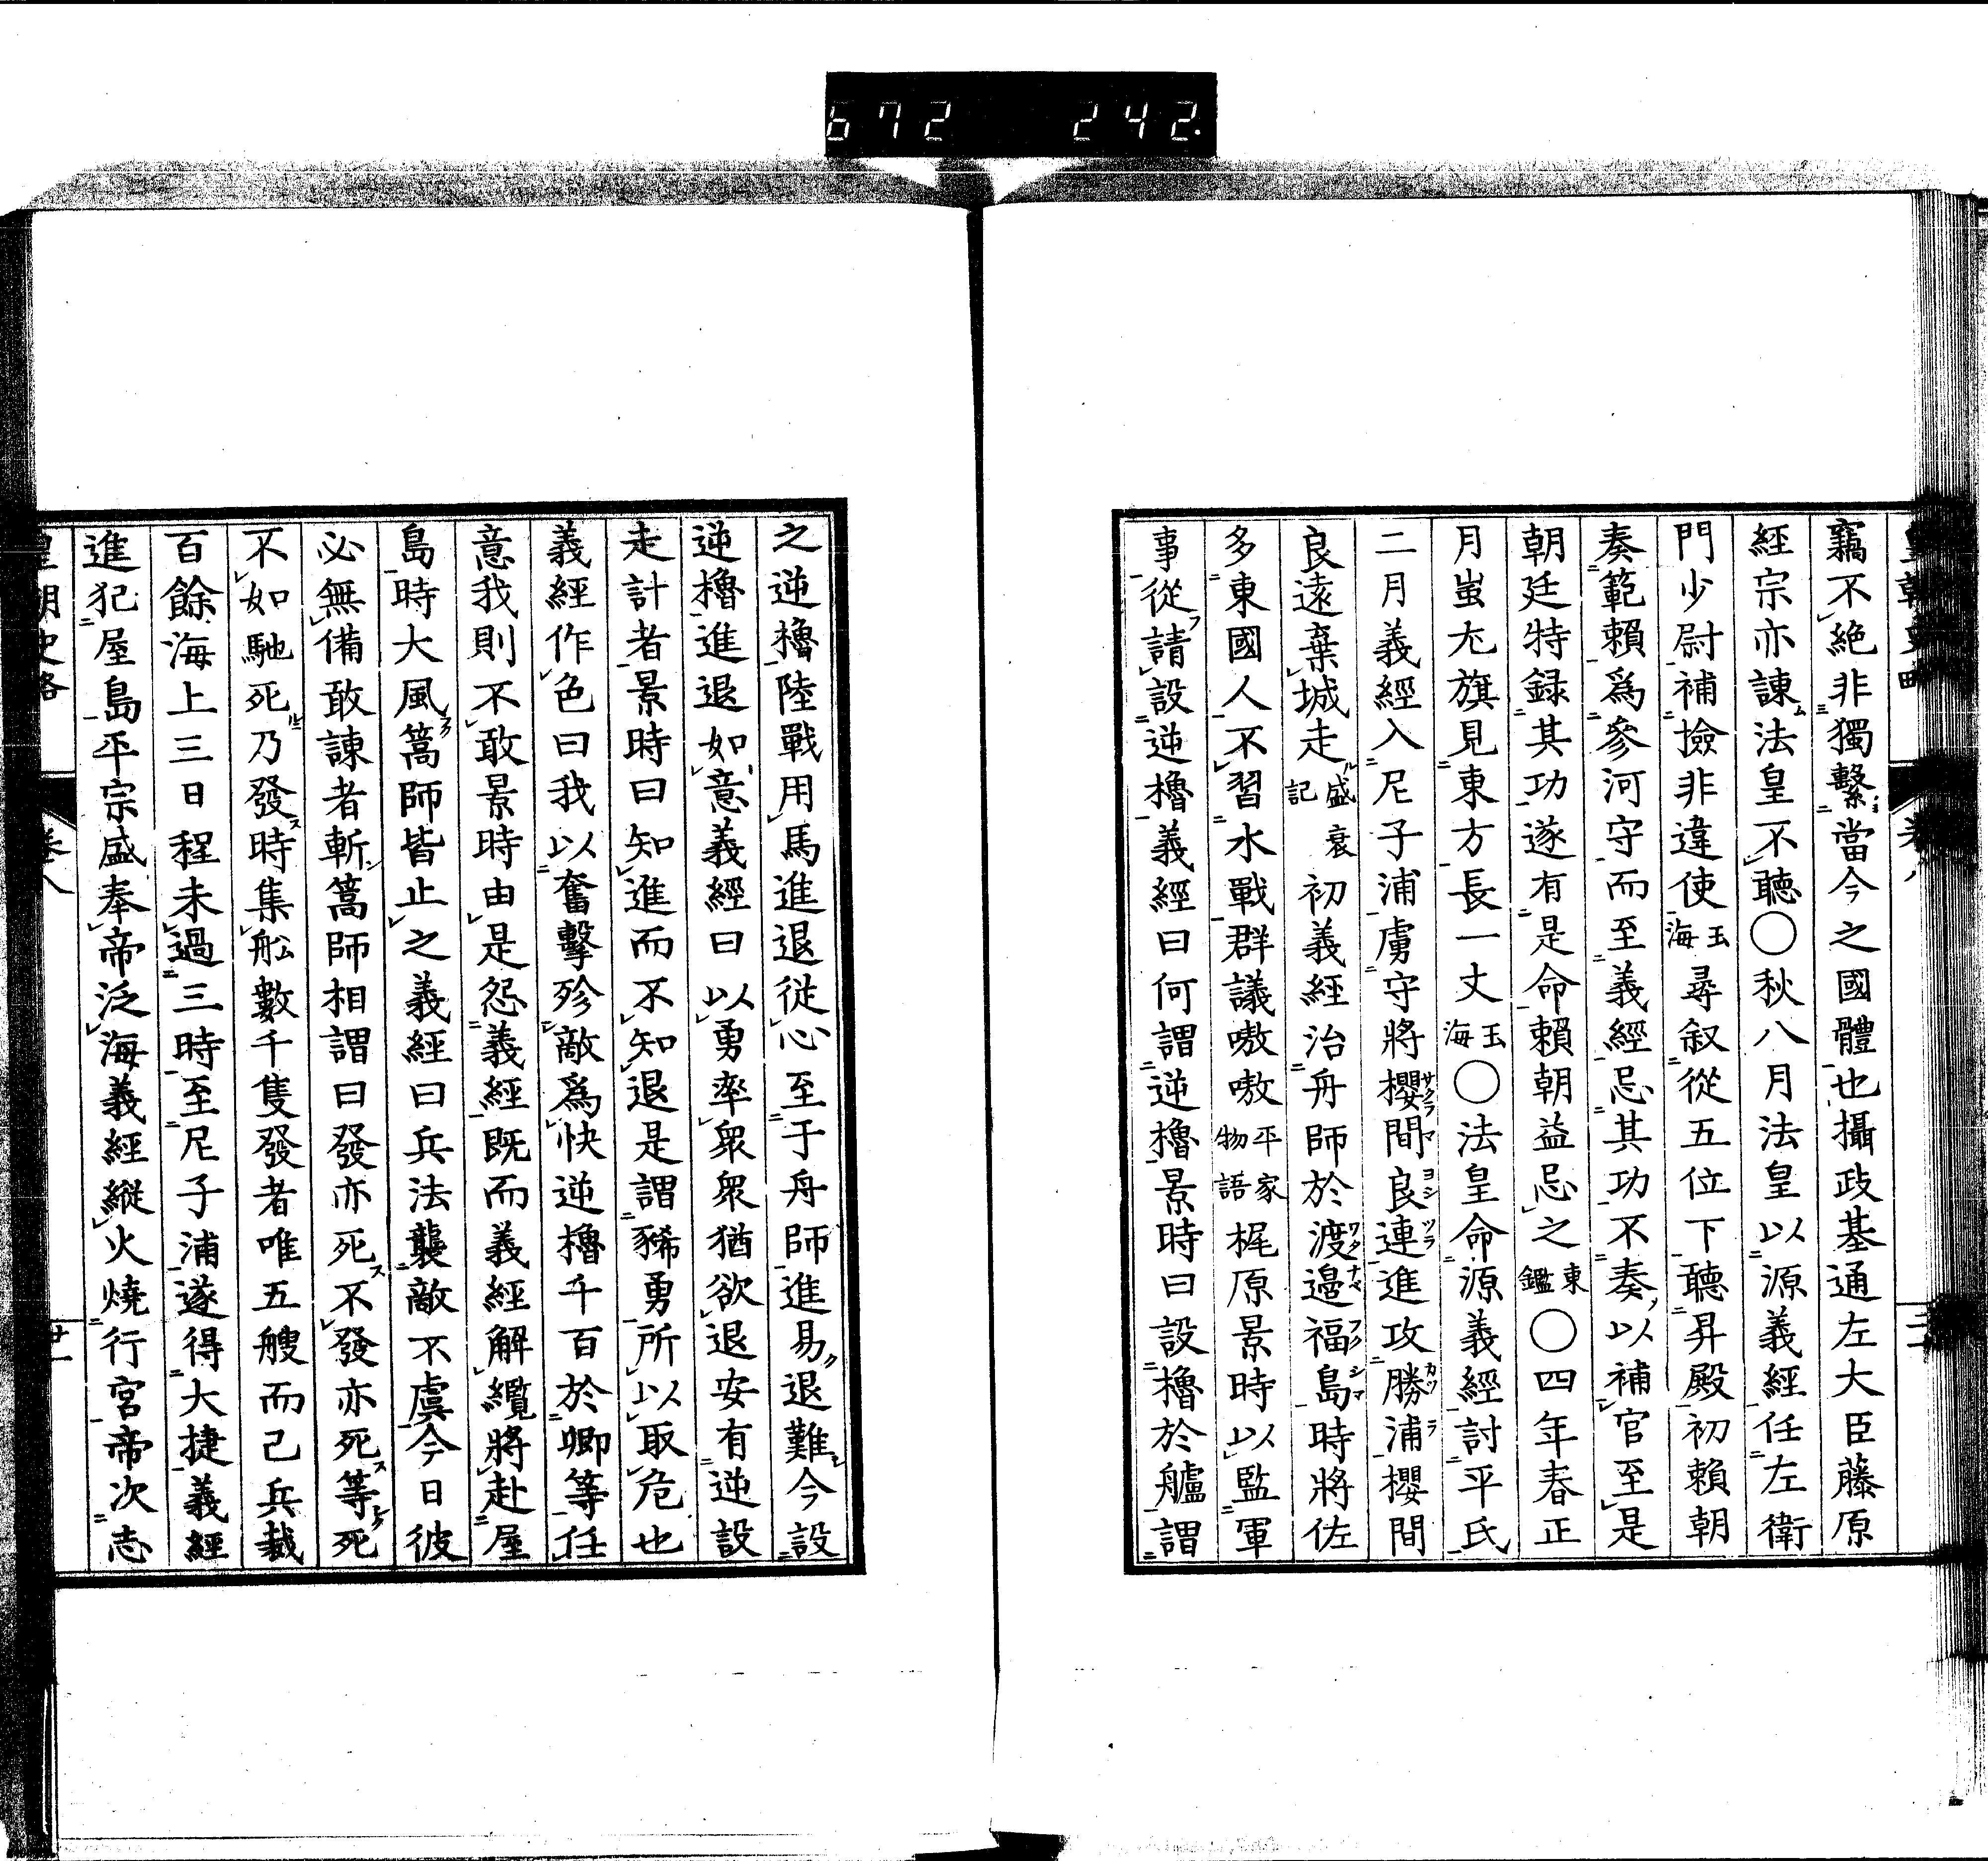 672 242
竊不絶非獨繫當今之國體也攝政基通左大臣藤原
經宗亦諫法皇不聽○秋八月法皇以源義經任左衛
門少尉補撿非違使玉海尋叙從五位下聽昇殿初賴朝
奏範賴爲參河守而至義經忌其功不奏以補官至是
朝廷特録其功遂有是命賴朝益忌之東鑑○四年春正
月蚩尤旗見東方長一丈玉海○法皇命源義經討平氏
二月義經入尼子浦虜守將櫻間良連進攻勝浦櫻間
良遠棄城走盛衰記初義經治舟師於渡邉福島時將佐
多東國人不習水戰群議嗷嗷平家物語梶原景時以監軍
事從請設逆櫓義經曰何謂逆櫓景時曰設櫓於艫謂
之逆櫓陸戰用馬進退從心至于舟師進易退難今設
逆櫓進退如意義經曰以勇率衆衆猶欲退安有逆設
走計者景時曰知進而不知退是謂豨勇所以取危也
義經作色曰我以奮擊殄敵爲快逆櫓千百於卿等任
意我則不敢景時由是怨義經既而義經解纜將赴屋
島時大風篙師皆止之義經曰兵法襲敵不虞今日彼
必無備敢諫者斬篙師相謂曰發亦死不發亦死等死
不如馳死乃發時集舩數千隻發者唯五艘而己兵裁
百餘海上三日程未過三時至尼子浦遂得大捷義經
進犯屋島平宗盛奉帝泛海義經縱火燒行宮帝次志
皇朝史略 卷八 廿一